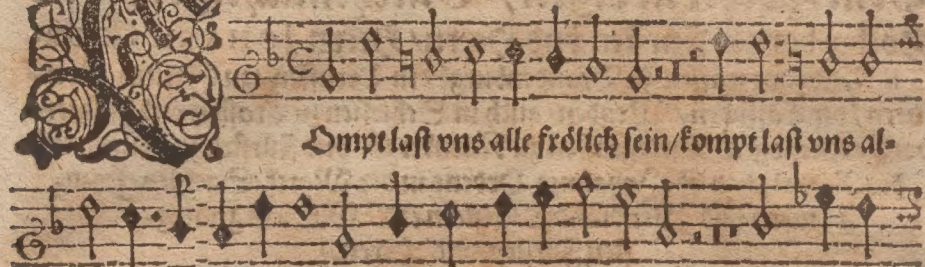 KOmpt last vns alle frölich sein/kompt last vns al-